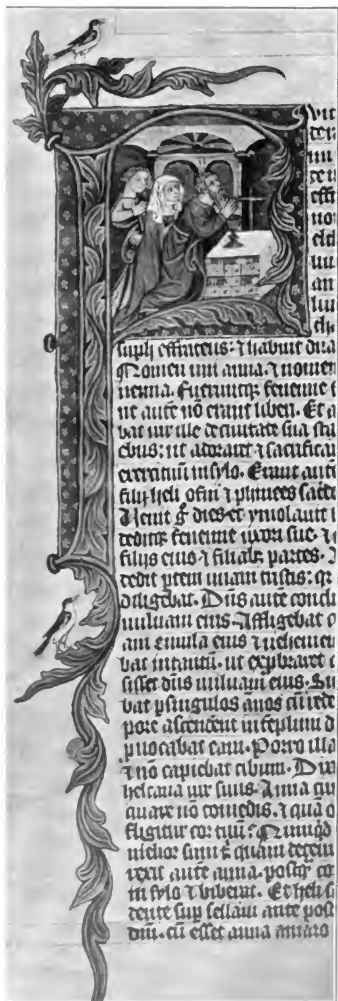 vit
effr
no
elch
an
suph effrateus· ⁊ habuit dua
Nomen uni anna· ⁊ nomen
nenna· Fueruntq; fenenne f
ne autē nō erant liberi· Et a
bat uir ille de ciuitate sua sta
ebus: ut adoraret ⁊ sacrificar
exercituū in sylo· Erant autē
filij heli ofni ⁊ phinees sacer
Uenit g̊ dies et ymolauit
deditq; fenenne uxori sue· ⁊ c
filijs eius ⁊ filiab; partes·
dedit ptem unam tristis: qr
diligebat· Dn̄s autē conclu
uuluam eius· Affligebat q
am emula eius ⁊ uehemen
bat intantū· ut exprobraret
sisset dn̄s uuluam eius· Si
bat p singulos annos cū rede
pore ascenderent in templum d
puocabat eam· Porro illa
⁊ nō capiebat cibum· Dix
helcana uir suus· Anna cu
quare nō comedis· ⁊ quā o
fligitur cor tuū? Nūnqd
melior sum t̄ quam decem
rexit autē anna· postq̄ co
in sylo ⁊ biberat· Et heli s
dente sup sellam ante post
dni· cū esset anna amaro